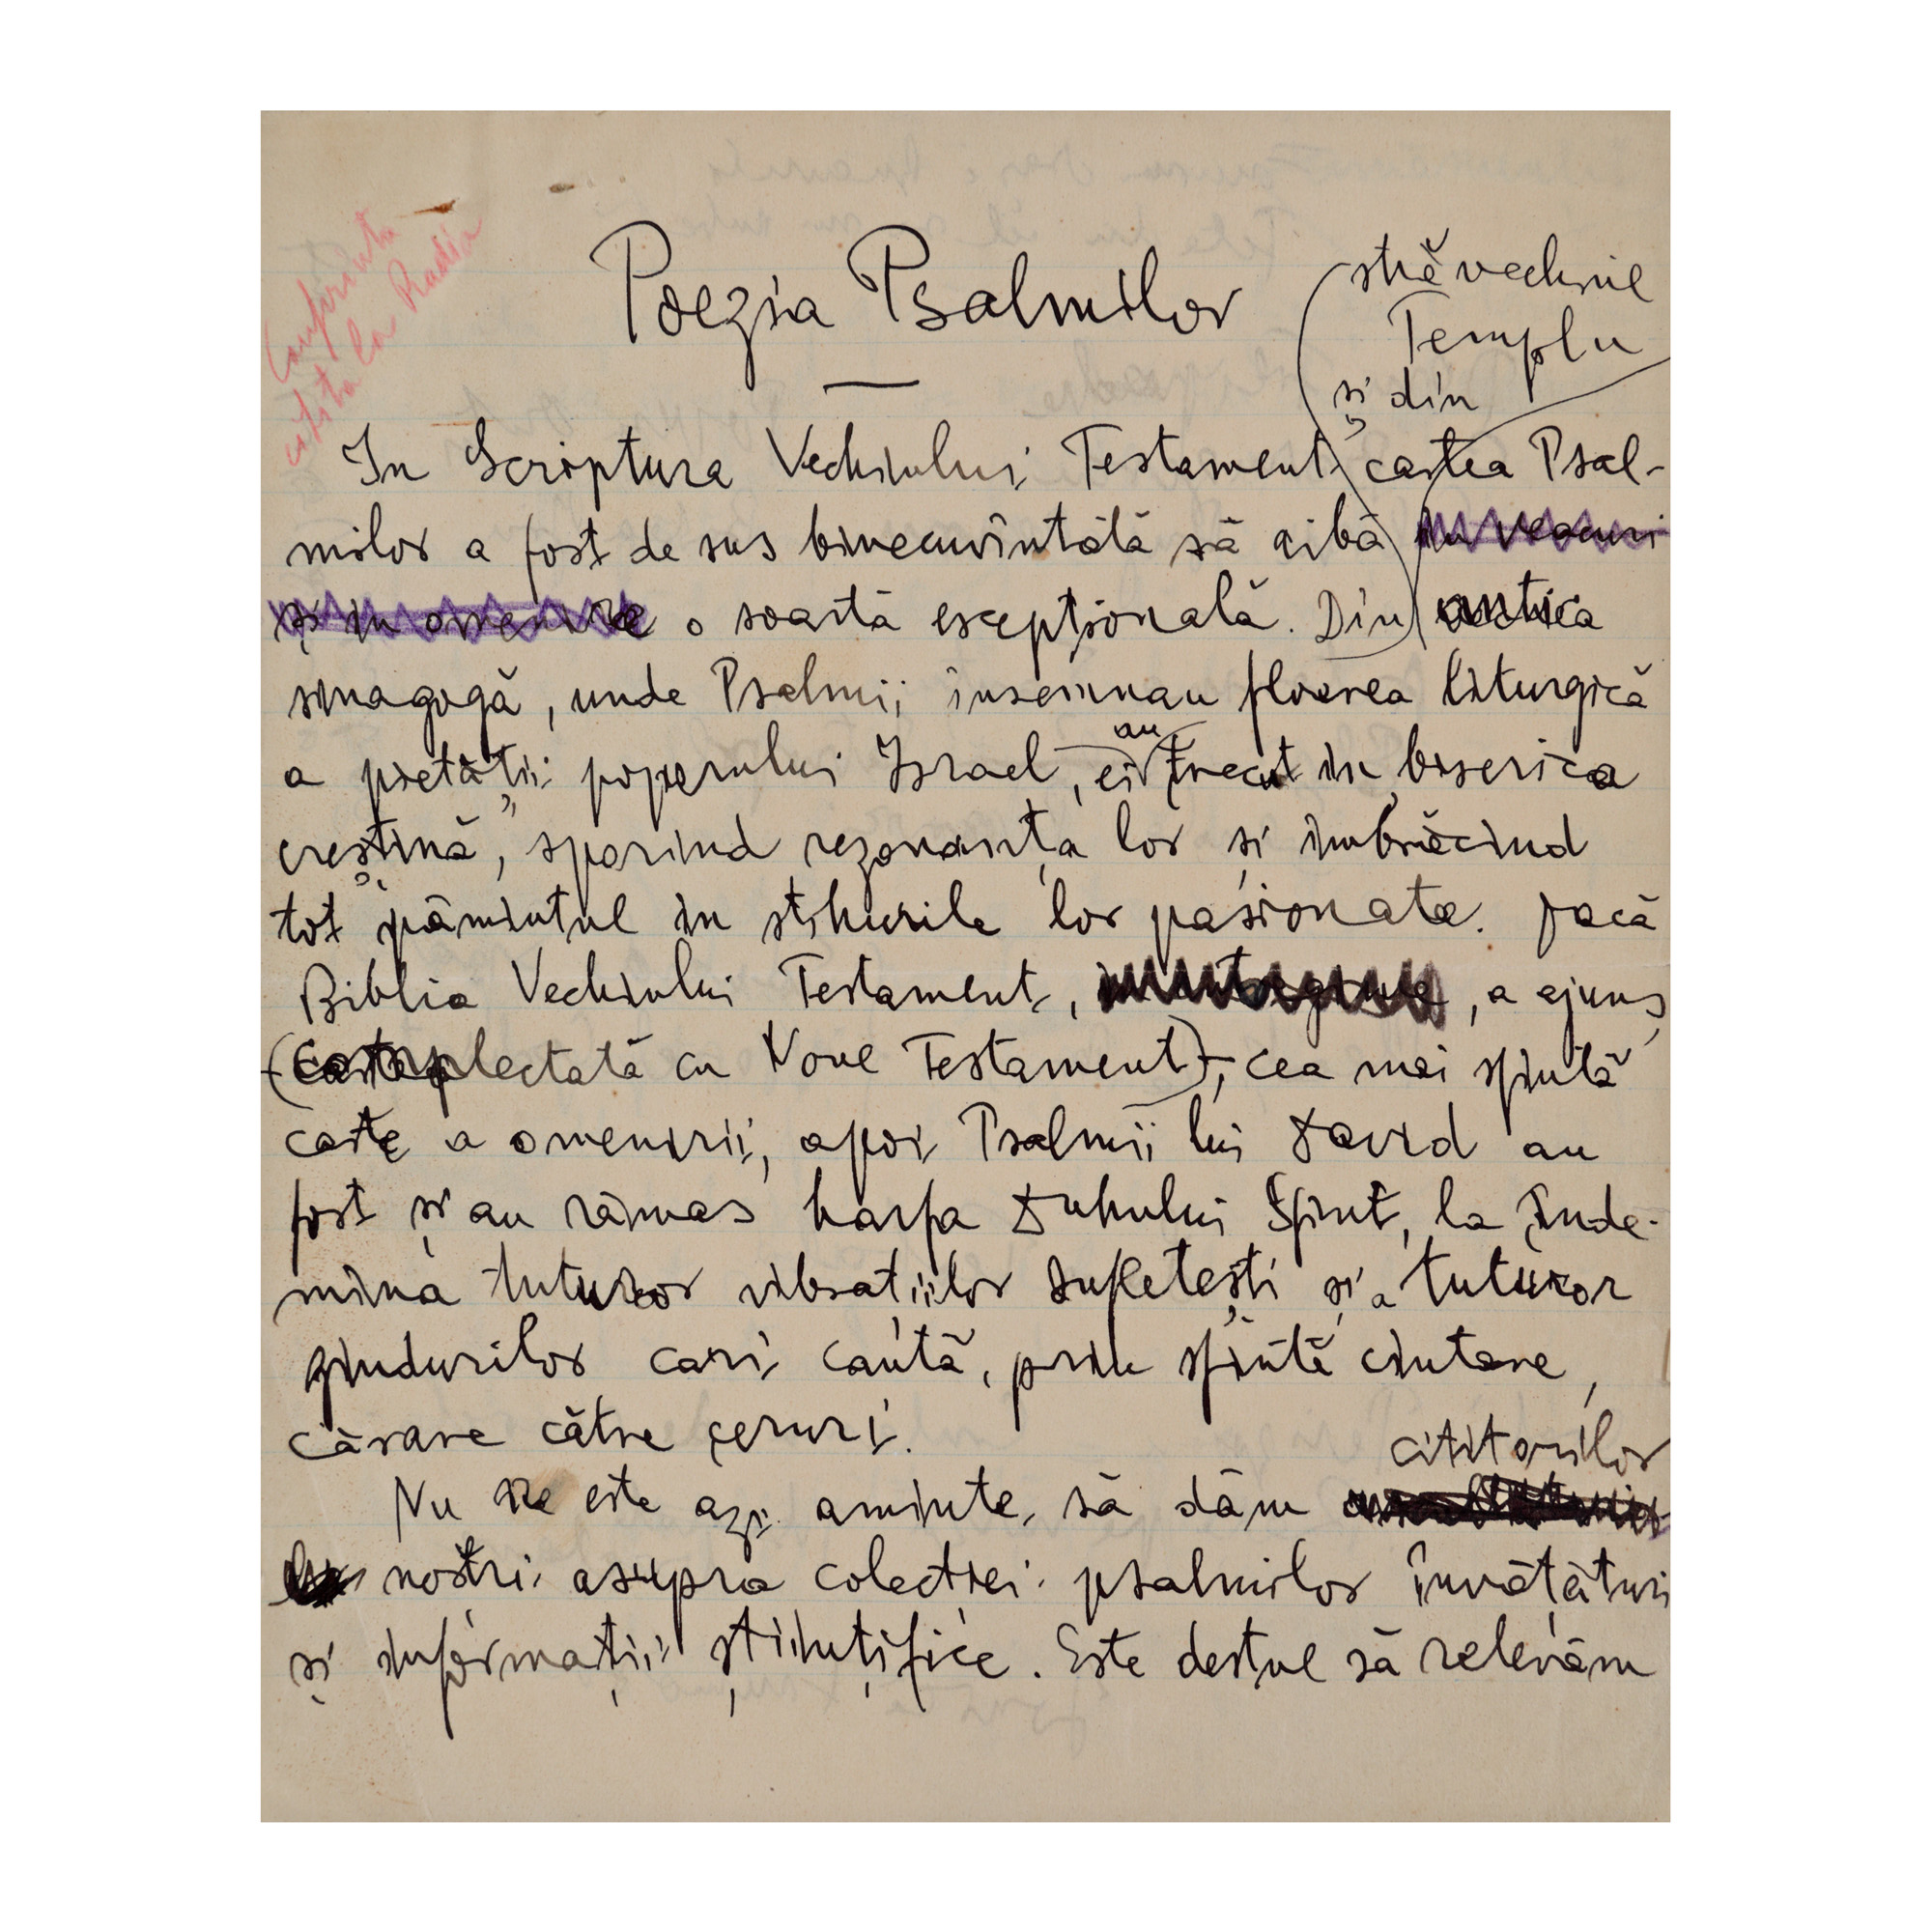 Conferință
citită la Radio
Poezia Psalmilor
străvechiul
Templu
și din
In Scriptura Vechiului Testament cartea Psal-
milor a fost de sus binecuvîntată să aibă in veacuri
și in omenire o soartă excepțională. Din antica
sinagogă, unde Psalmii însemnau floarea liturgică
au
a pietății poporului Israel, ei trecut in biserica
creștină, sporind rezonanța lor și imbrăcind
tot pămintul in stihurile lor pasionate. Dacă
Biblia Vechiului Testament, , a ajuns
(complectată cu Noul Testament), cea mai sfintă
carte a omenirii, apoi Psalmii lui David au
fost și au rămas harfa Duhului Sfint, la înde-
mina tuturor vibrațiilor sufletești și a tuturor
gindurilor cari caută, prin sfintă cintare,
cărare către ceruri.
cititorilor
Nu ne este azi aminte, să dăm
noștri asupra colecției psalmilor învățături
și informații științifice. Este destul să relevăm